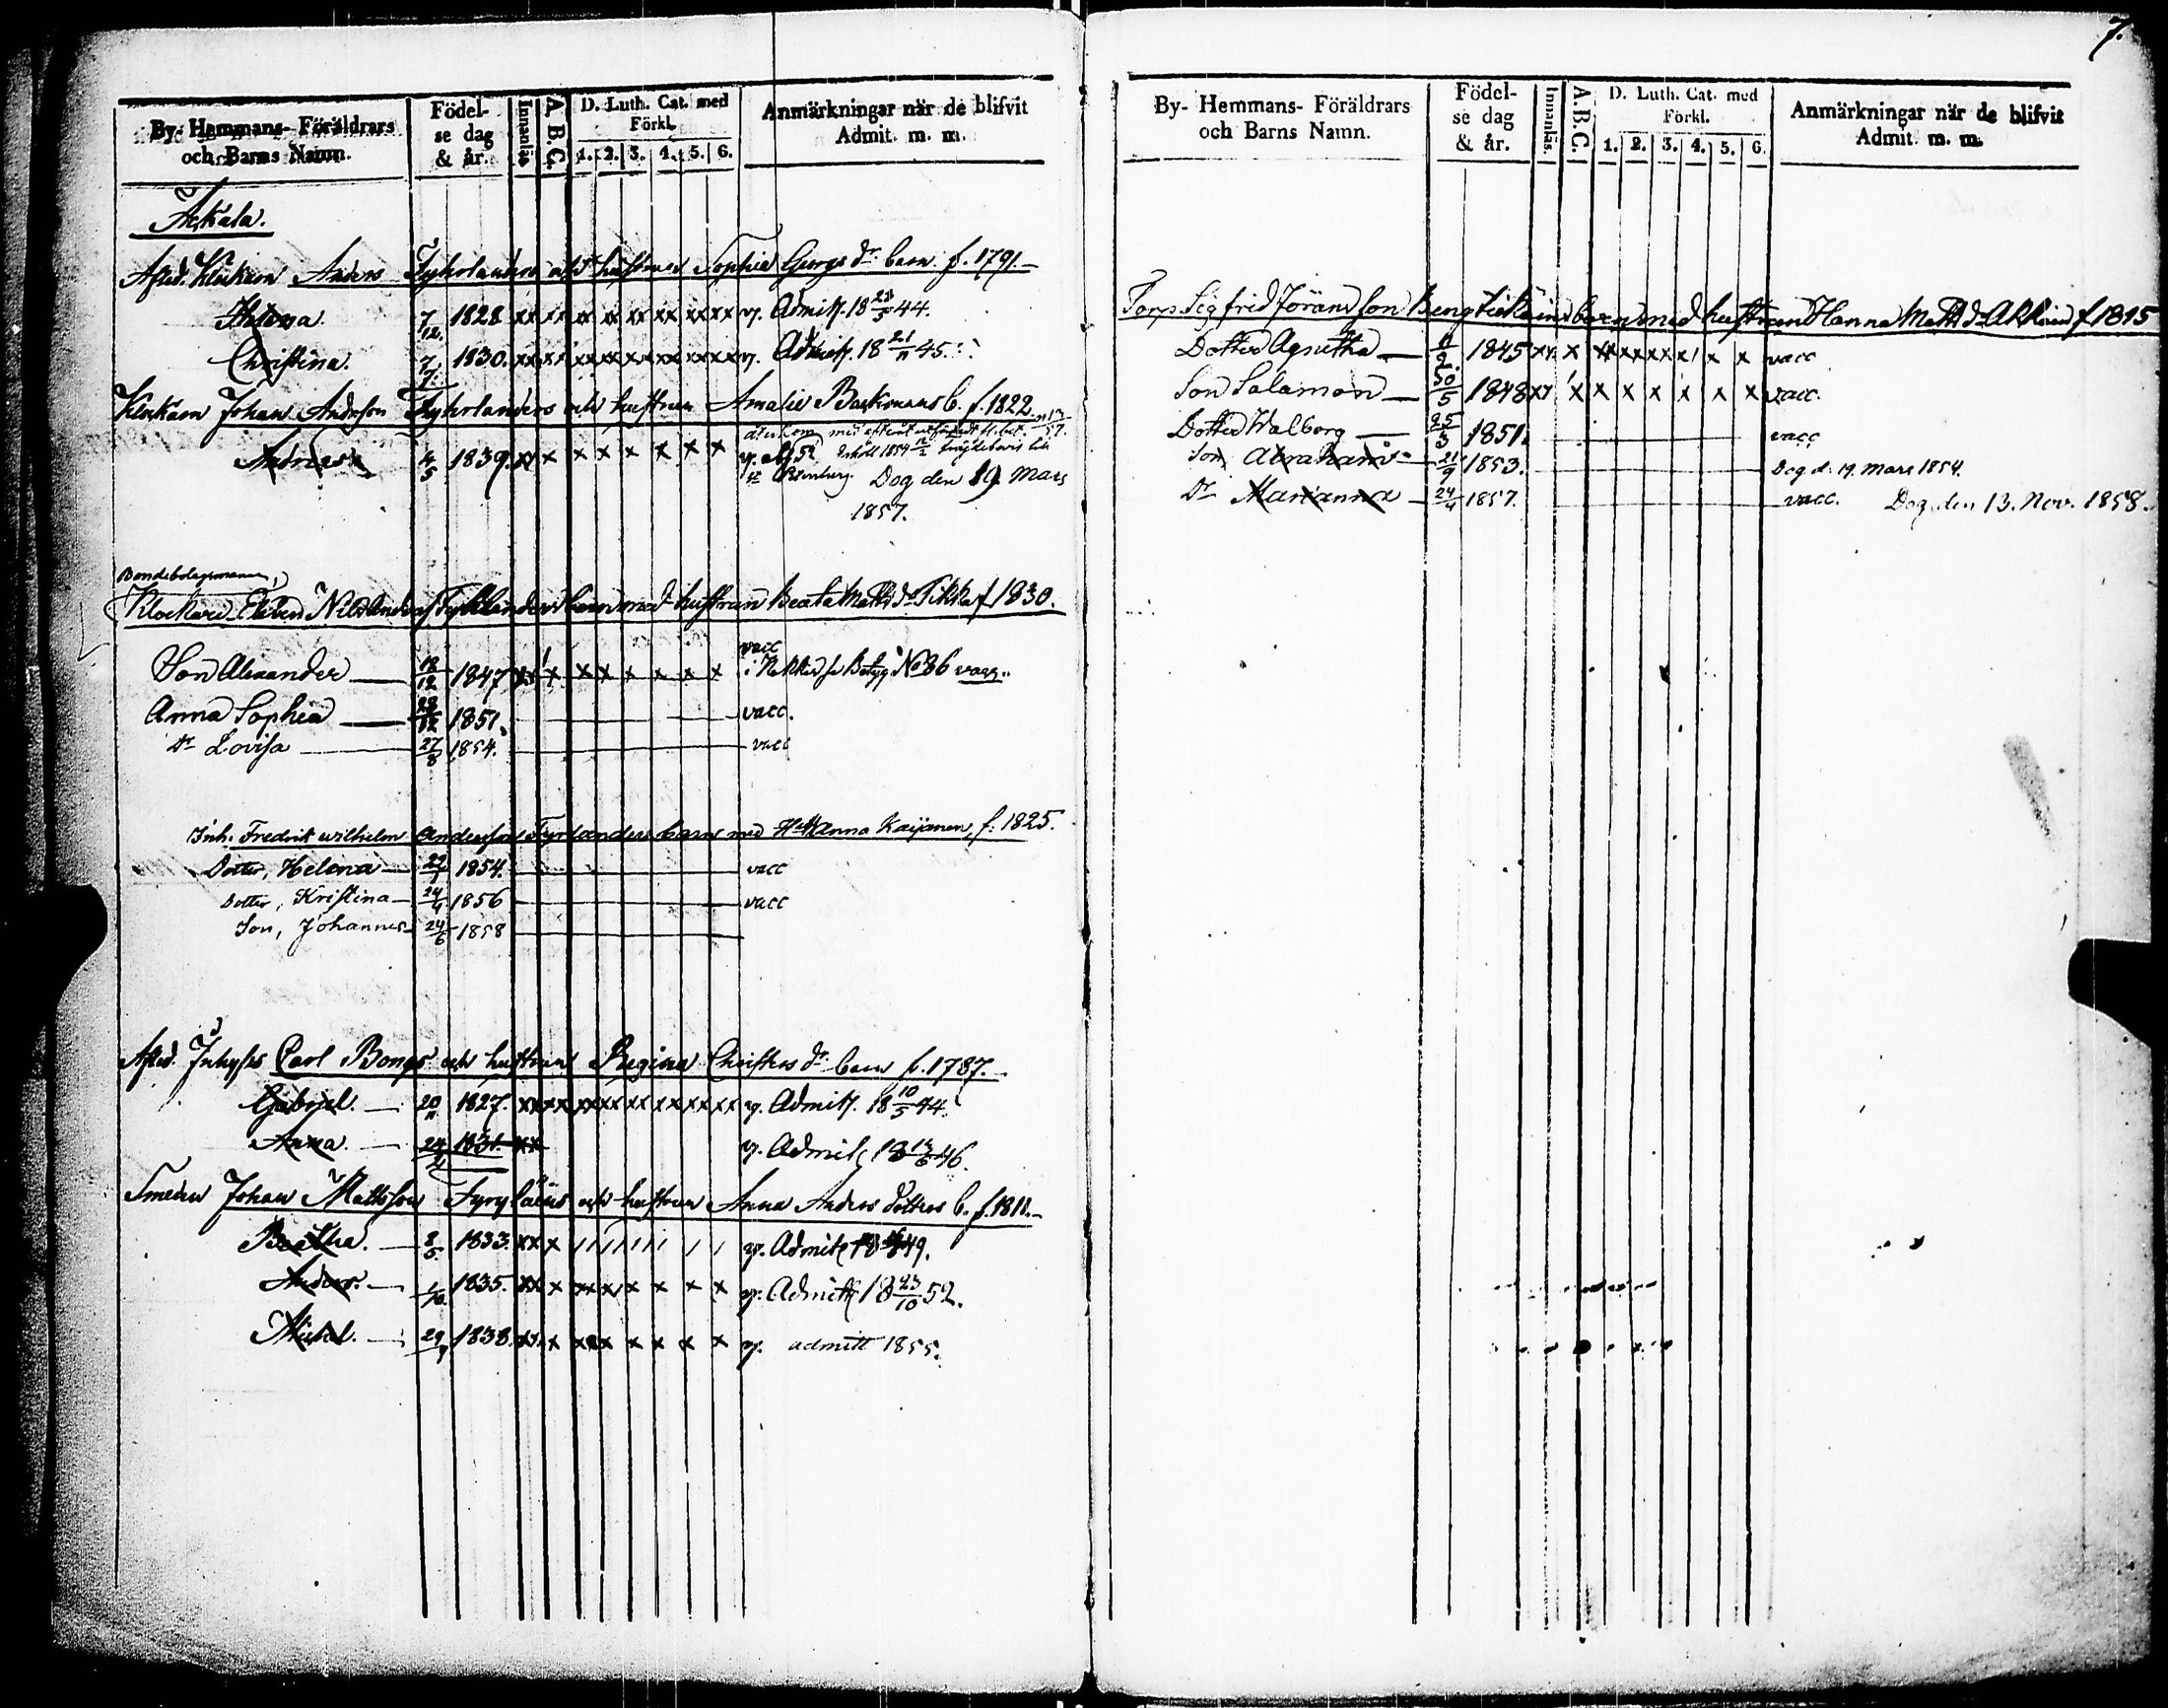 7.
By- Hemmans- Föräldrars och Barns Namn.
Födel-se dag & år.
Innanläs.
A. B. C.
D. Luth. Cat. med Förkl.
1. 2. 3. 4. 5. 6.
Anmärkningar när de blifvit Admit. m. m.
Afled. Klockaren Anders Fyhrlanders och hustruns Sophia Georgs dr. barn f. 1791.
Helena. 7/12. 1828 xx xx xx xx xx xx xx xx v. Admitt. 18 23/5 44.
Christina. 7/7. 1830. xx xx xx xx xx xx xx xx v. Admitt. 18 21/11 45.
Klockaren Johan Andersson Fyhrlanders och hustrun Amalie Backmans b. f. 1822.
återkom med
Andreas 4/5 1839. xx x x x x x x x v.
Dog den 19 Mars
1857.
Bondebolagsmannen,
Klockare Eleven Nils Anders Fyhrlanders barn med hustrun Beata Matts dr Tikka f 1830.
vacc
Son Alexander 18/12 1847 xx x x x x x x x Betyg No 86 vacc.
Anna Sophia 28/12 1851. vacc.
Dr Lovisa 27/8 1854. vacc
Inh. Fredrik Wilhelm Andersson Fyrlanders barn med H. Hanna Kaijanen, f. 1825.
Dotter, Helena 29/1 1854. vacc
Dotter, Kristina 24/4 1856 vacc
Son, Johannes 24/6 1858
Afled. Inhyses Carl Bongs och hustrun Regina Christers dr. barn f. 1787.
Gabriel. 20/11 1827. xx xx xx xx xx xx xx xx v. Admitt. 18 10/5 44.
Anna. 1831. xx v. Admitt 46.
Smeden Johan Mattsson Fyryläins och hustrun Anna Anders dotters b. f. 1811.
Beatha. 8/5. 1833. xx x v. Admitt 1849.
Anders. 1/10. 1835. xx x xx x x x x x v. Admitt 18 23/10 52.
Michel. 1838. xx x xx x x x x x v. admitt 1855.
By- Hemmans- Föräldrars och Barns Namn.
Födel-se dag & år.
Innanläs.
A. B. C.
D. Luth. Cat. med Förkl.
1. 2. 3. 4. 5. 6.
Anmärkningar när de blifvit Admit. m. m.
Torp. Sigfrid Jöransson barn med hustrun Hanna Matts dr f 1815
Dotter Agnetha 1845 xx x xx xx xx x x x vacc
Son Salamon 30/5 1848 xx x x x x x x x vacc.
Dotter Walborg 25/3 1851. vacc
Son Abraham 21/9 1853. Dog d. 19. Mars 1854.
Dr Marianna 24/4 1857. vacc. Dog den 13. Nov. 1858.